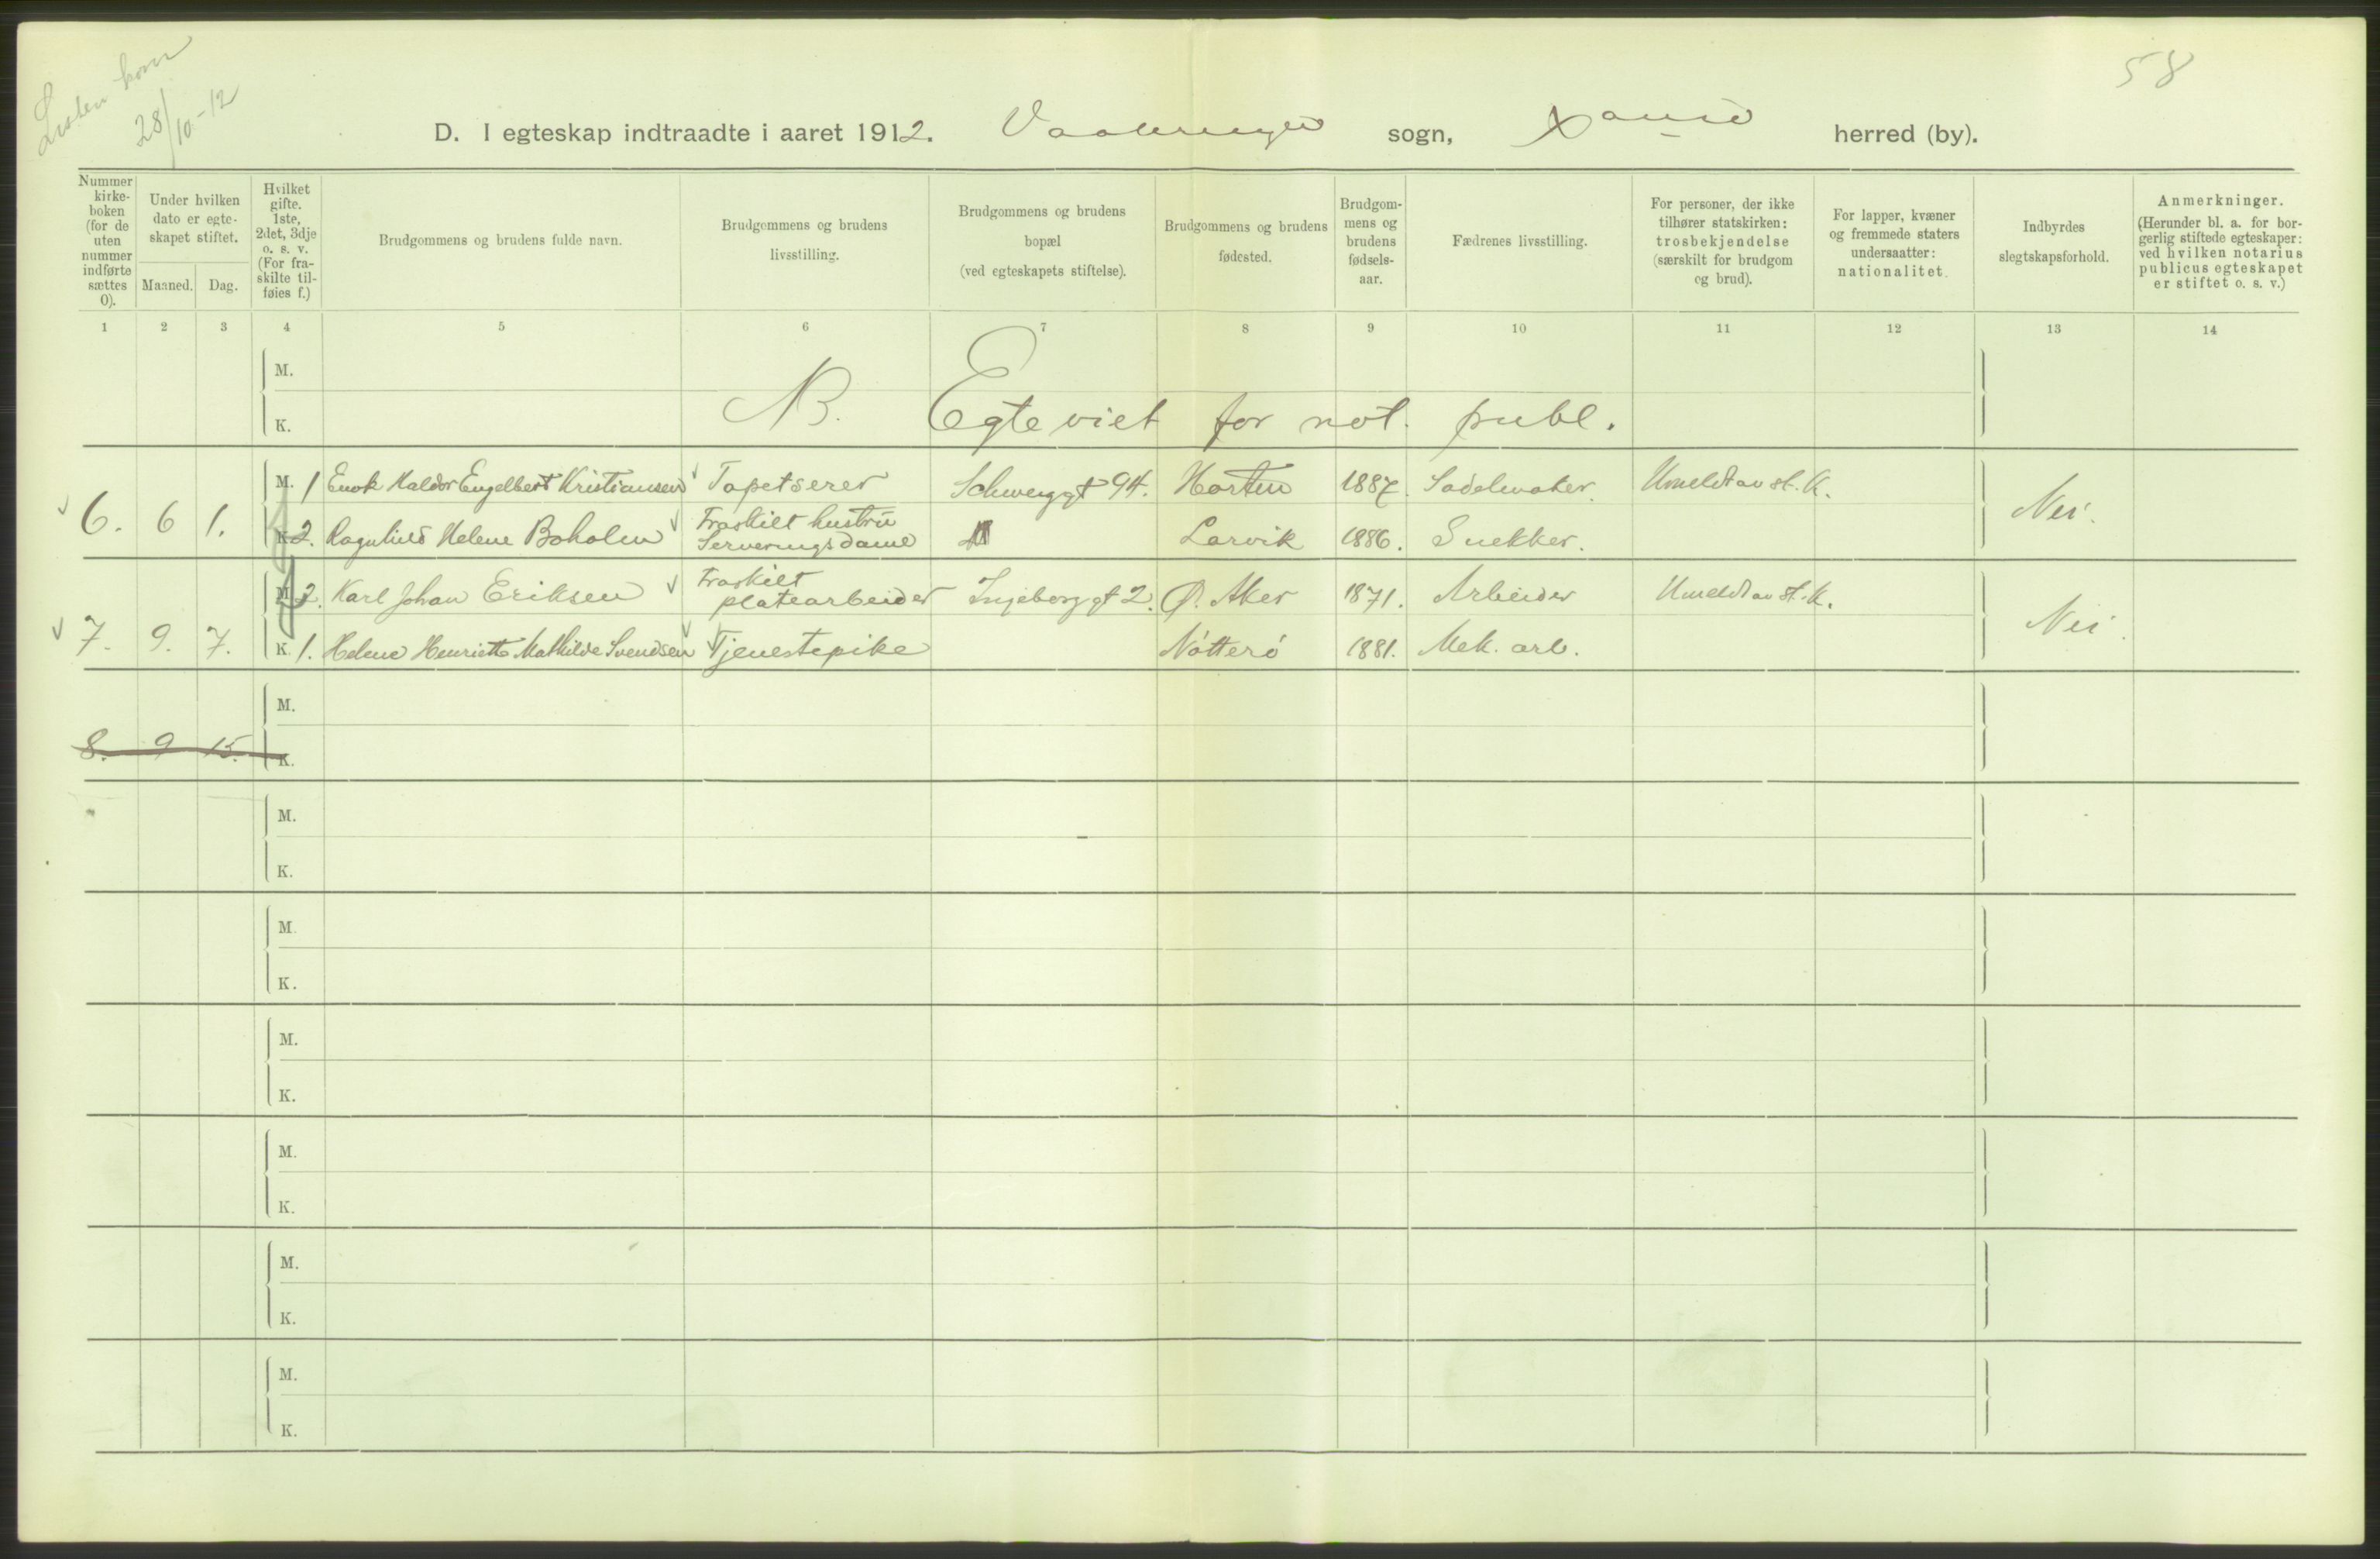 Listen kom
28/10-12
58
D. I egteskap indtraadte i aaret 1912. Vaalerengen sogn, Xania herred (by).
Nummer kirkeboken (for de uten nummer indførte sættes 0).
Under hvilken dato er egteskapet stiftet.
Maaned. Dag.
Hvilket gifte. 1ste, 2det, 3dje o. s. v. (For fraskilte tilføies f.)
Brudgommens og brudens fulde navn.
Brudgommens og brudens livsstilling.
Brudgommens og brudens bopæl (ved egteskapets stiftelse).
Brudgommens og brudens fødested.
Brudgommens og brudens fødselsaar.
Fædrenes livsstilling.
For personer, der ikke tilhører statskirken: trosbekjendelse (særskilt for brudgom og brud).
For lapper, kvæner og fremmede staters undersaatter: nationalitet.
Indbyrdes slegtskapsforhold.
Anmerkninger. (Herunder bl. a. for borgerlig stiftede egteskaper: ved hvilken notarius publicus egteskapet er stiftet o. s. v.)
1 2 3 4 5 6 7 8 9 10 11 12 13 14
M.
K. NB. Egteviet for not. publ.
M. 1 Enok Haldor Engelbert Kristiansen Tapetserer Schweiggt 94. Horten 1887. Sadelmaker. Utmeldt av st. k.
6. 6 1. Nei.
K. 2. Ragnhild Helene Boholm Fraskilt hustru Serveringsdame Larvik 1886. Snekker.
M. 2. Karl Johan Eriksen Fraskilt platearbeider Ingeborggt 2. Ø. Aker 1871. Arbeider Utmeldt av st. k.
7. 9. 7. Nei.
K. 1. Helene Henriette Mathilde Svendsen Tjenestepike Nötterö 1881. Mek. arb.
M.
8. 9 15. K.
M.
K.
M.
K.
M.
K.
M.
K.
M.
K.
M.
K.